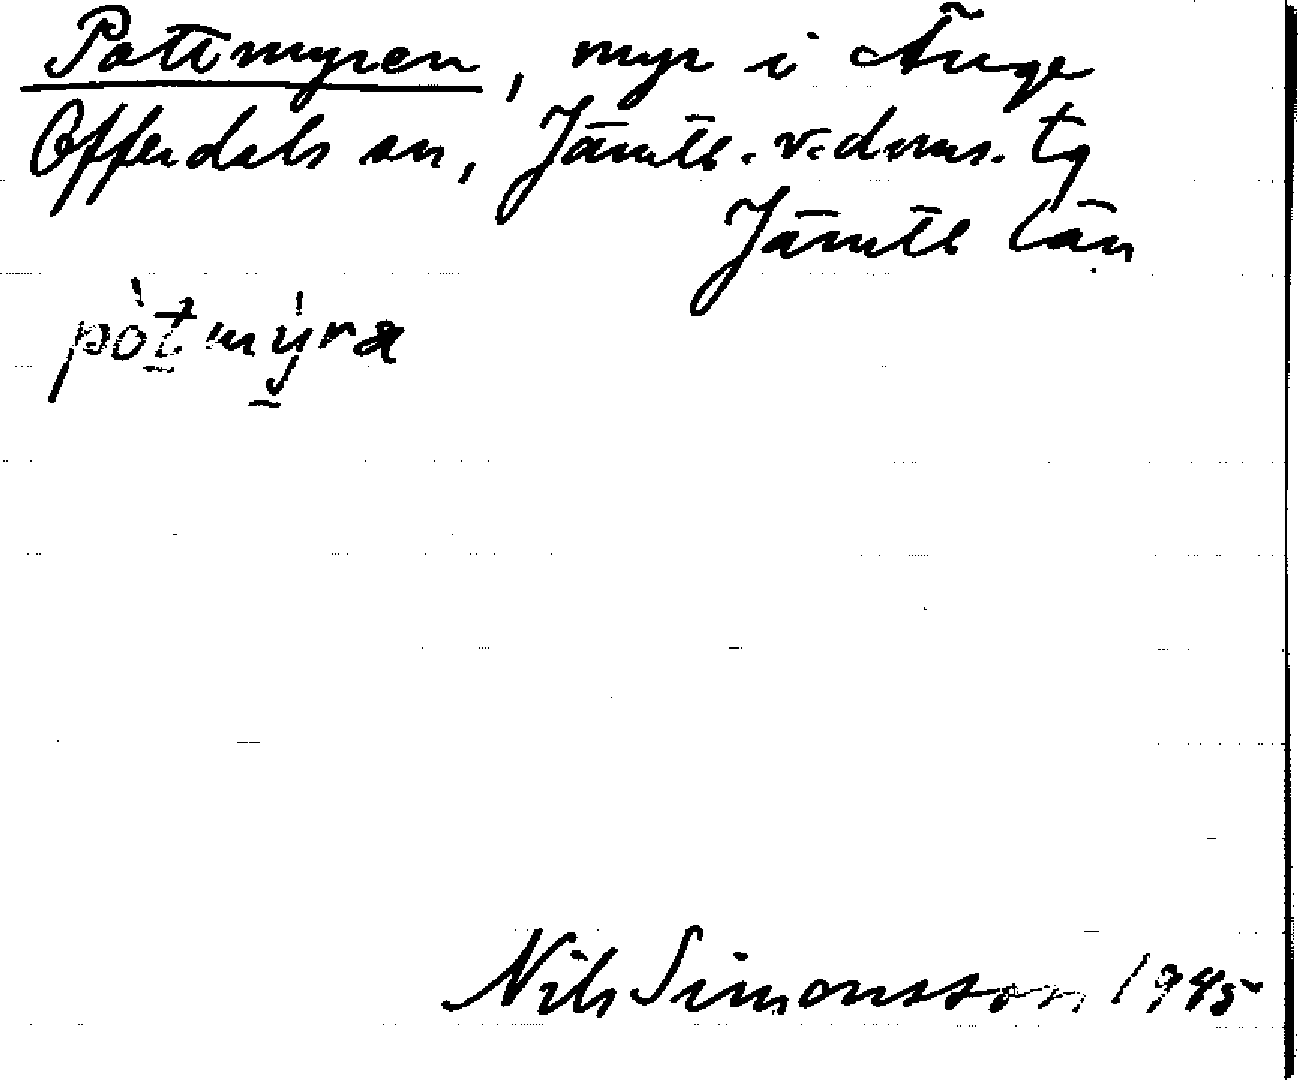 Pottmyren, myr i Änge
Offerdals sn, Jämtl. v. doms. tg
Jämtl län
pòtmỳra
Nils Simonsson 1945